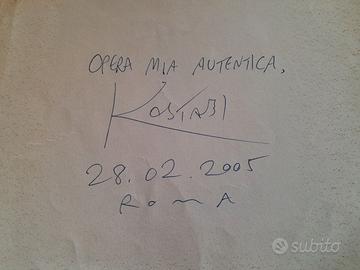 OPERA MIA AUTENTICA,
KOSTABI
28.02.2005
ROMA
subito